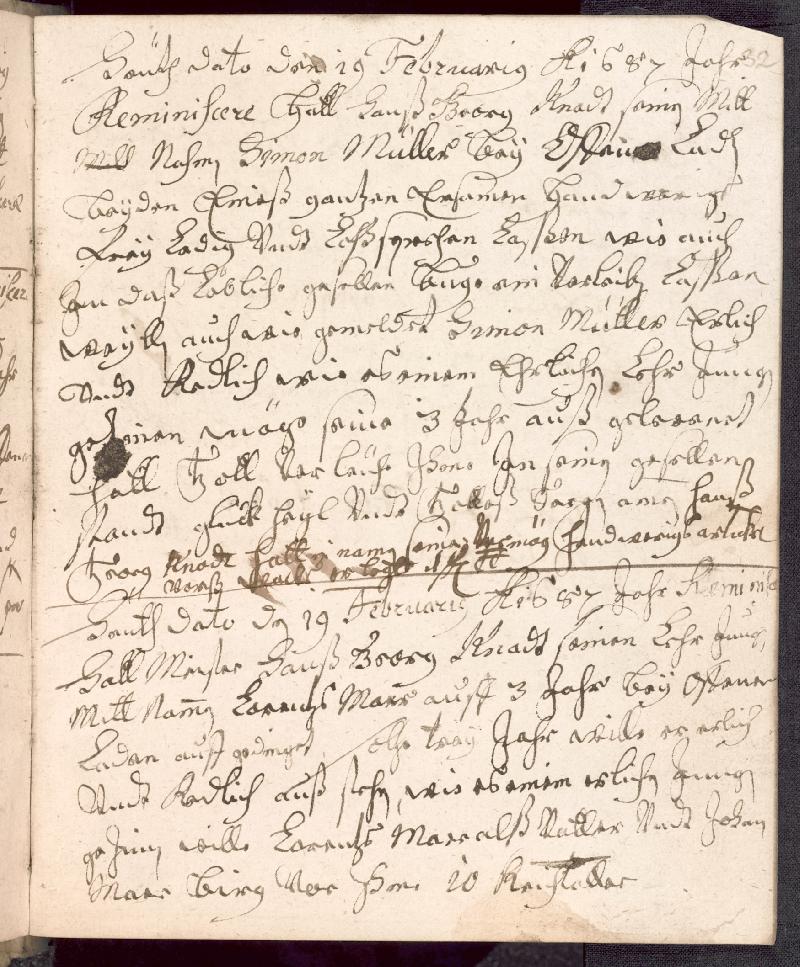 Heuth dato den 19 Februariy A 1687 Jahr 32
Reminiscere hatt Hanß Georg Knadt seiny Mitt
Nahmen Simon Müller bey Offene Ladt
beyden Eineß gantzen Ersamen handwergs
frey Ledig Undt Loßsprechen Lassen wie auch
daß Löbliche gesellen einVerleibt Lassen
weyll auch wie gemeldet Simon Müller Erlich
Undt Redlich wie es einem Ehrlichen Lehr Jungen
geziemen möge seine 3 Jahr auß gelernet
hatt Gott Verleihe Ihme In seinen gesellen
standt glück heyl Undt Gotteß Segen amen Hanß
Georg Knadt hatt namen seines Vermög handwergs articul
erlegt
Heuth dato den 19 Februariy A 1687 Jahr Reminis
Hatt Meister Hanß Georg Knadt seinen Lehr Jung
Mitt Namen Lorentz Marx auff 3 Jahr bey Offener
Laden auff gedinget, solge trey Jahr wille er erlich
Undt Redlich auß stehn, wie es einem erlichen Jungen
geziemen wille Lorentz Marx alß Vatter Undt Johan
Marx bürg Vor Ihme 10 Reichstaller